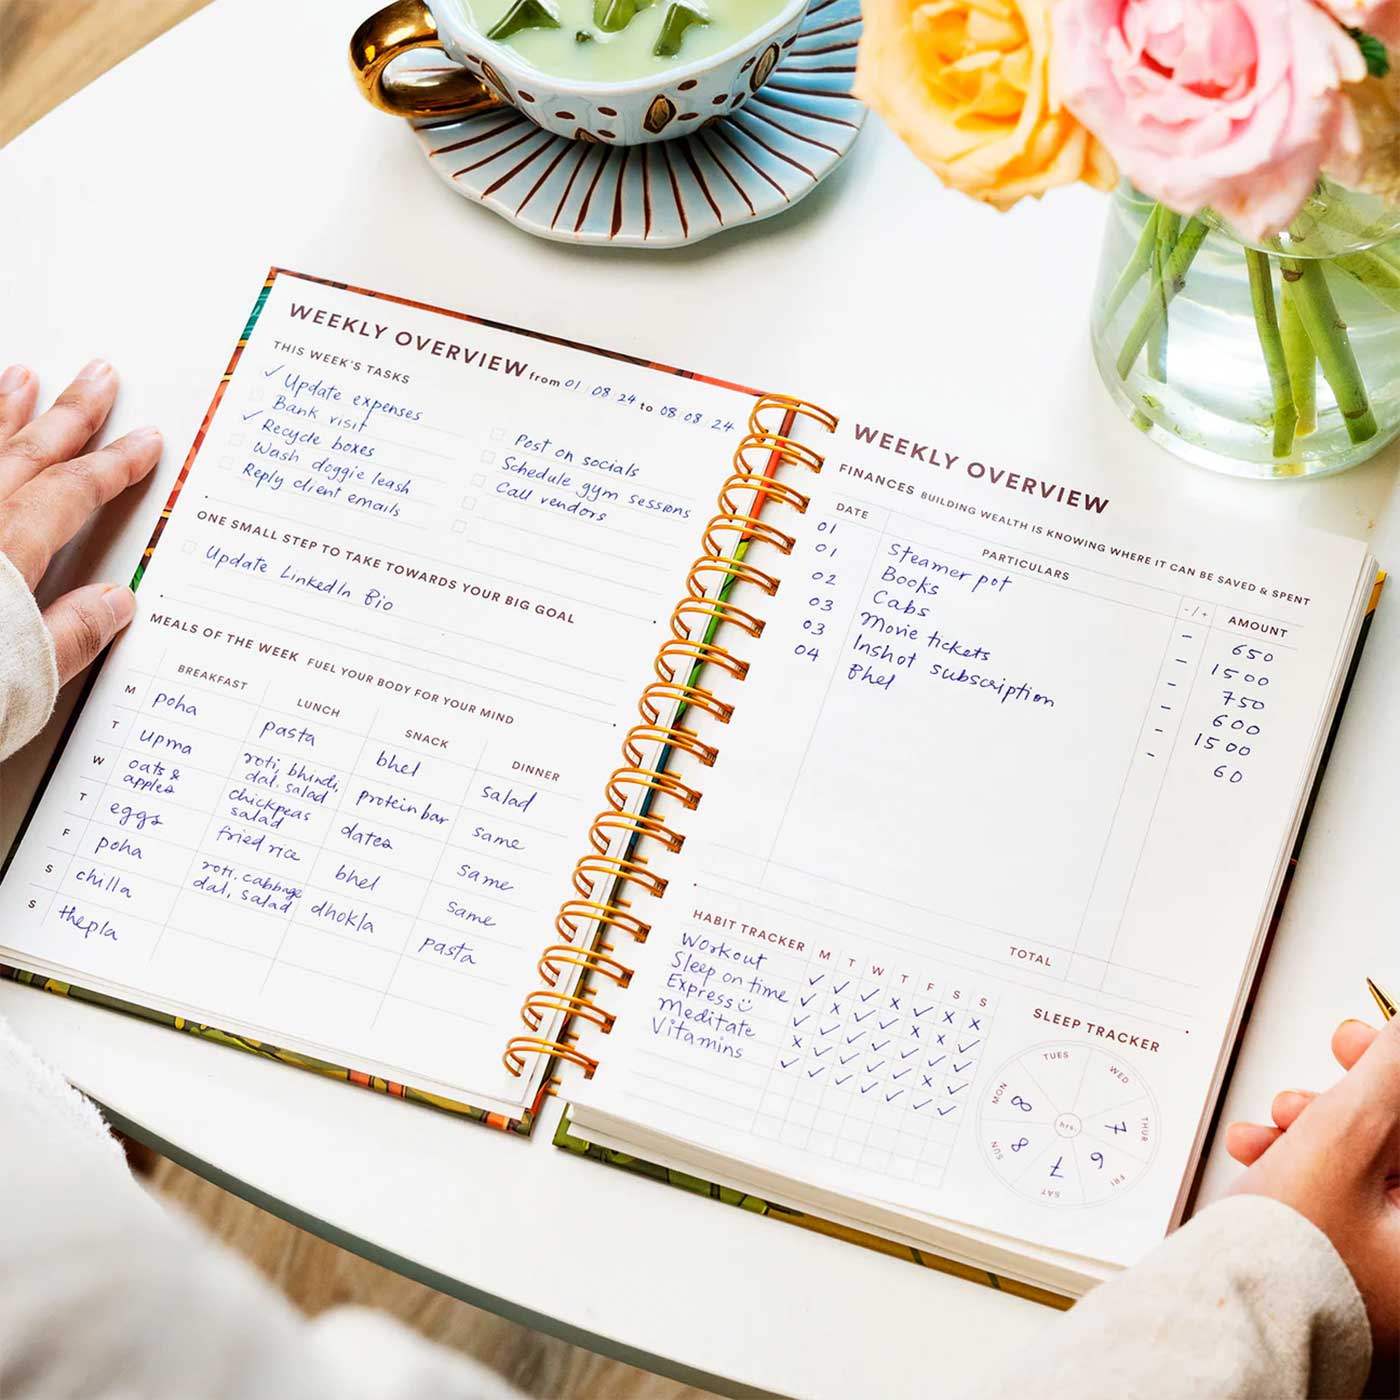 WEEKLY OVERVIEW from 01 08 24 to 08 08 24
THIS WEEK'S TASKS
✓ Update expenses
Bank visit
✓ Recycle boxes
Wash doggie leash
Reply client emails
Post on socials
Schedule gym sessions
Call vendors
ONE SMALL STEP TO TAKE TOWARDS YOUR BIG GOAL
Update LinkedIn Bio
MEALS OF THE WEEK FUEL YOUR BODY FOR YOUR MIND
BREAKFAST LUNCH SNACK DINNER
M poha pasta bhel salad
T upma roti, bhindi, dal, salad protein bar same
W oats & apples chickpeas salad dates same
T eggs fried rice bhel same
F poha roti, cabbage dal, salad dhokla pasta
S chilla
S thepla
WEEKLY OVERVIEW
FINANCES BUILDING WEALTH IS KNOWING WHERE IT CAN BE SAVED & SPENT
DATE PARTICULARS -/+ AMOUNT
01 Steamer pot - 650
01 Books - 1500
02 Cabs - 750
03 Movie tickets - 600
03 Inshot subscription - 1500
04 Bhel - 60
TOTAL
HABIT TRACKER M T W T F S S
Workout ✓ ✓ ✓ x ✓ x x
Sleep on time ✓ x ✓ ✓ x x ✓
Express ☺ ✓ ✓ ✓ ✓ ✓ ✓ ✓
Meditate x ✓ ✓ ✓ ✓ x ✓
Vitamins ✓ ✓ ✓ ✓ ✓ ✓ ✓
SLEEP TRACKER
TUES
WED
MON
8
hrs.
7
THUR
SUN
8
7
6
FRI
SAT